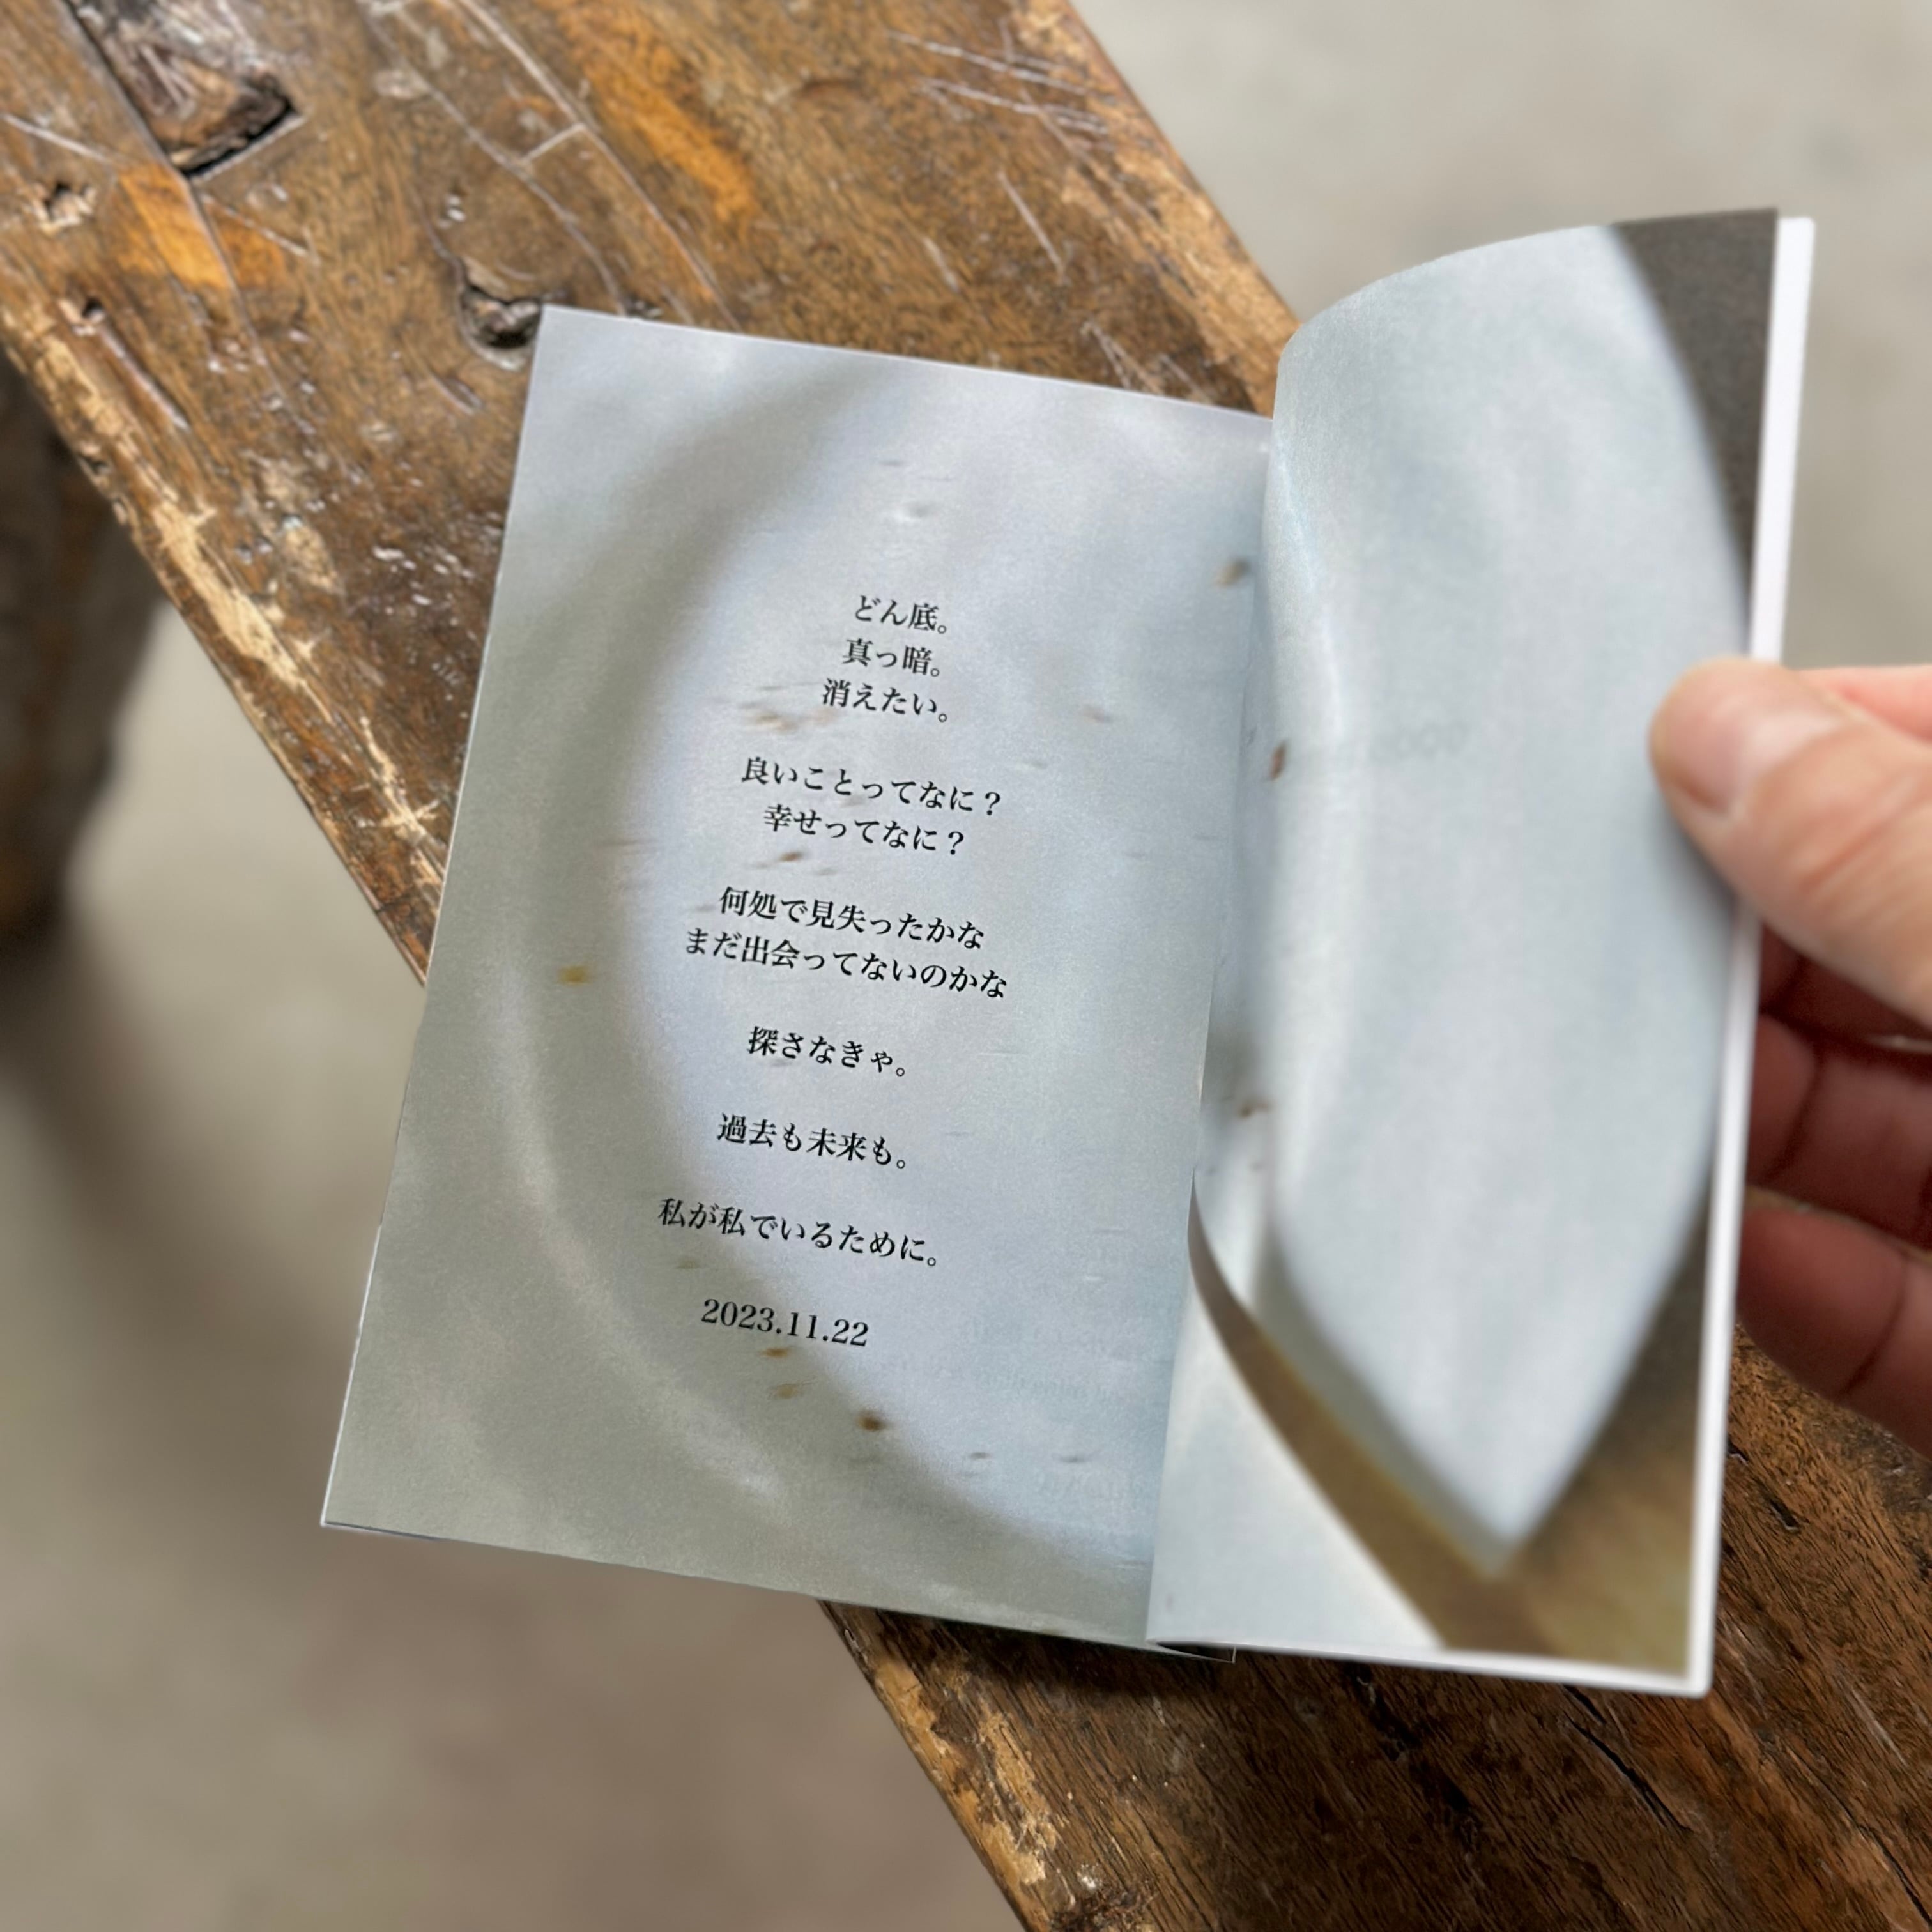 どん底。
真っ暗。
消えたい。
良いことってなに？
幸せってなに？
何処で見失ったかな
まだ出会ってないのかな
探さなきゃ。
過去も未来も。
私が私でいるために。
2023.11.22